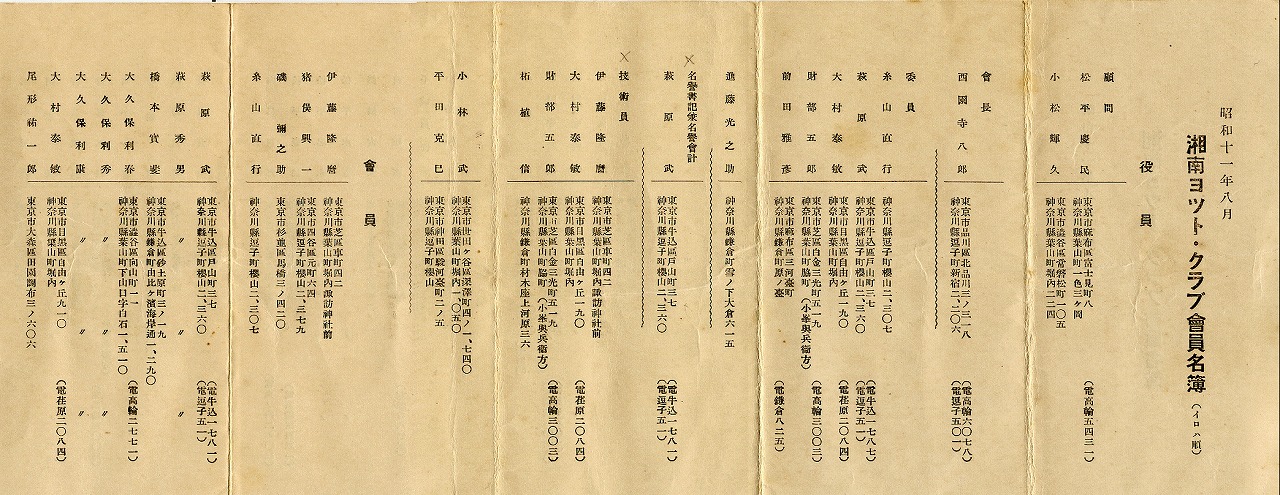 昭和十一年八月
湘南ヨット・クラブ會員名簿（イロハ順）
役員
顧問
松平慶民 東京市麻布區富士見町八 （電高輪五四三一）
神奈川縣葉山町一色三ヶ岡
小松輝久 東京市澁谷區常磐松町一〇五
神奈川縣葉山町堀內二二四
會長
西園寺八郎 東京市品川區北品川三ノ三一八 （電高輪六〇七八）
神奈川縣逗子町新宿二、二〇六 （電逗子五〇一）
委員
糸山直行 神奈川縣逗子町櫻山二、三〇七
萩原武 東京市牛込區早山町三七 （電牛込一七八七）
神奈川縣逗子町櫻山二、三六〇 （電逗子五一）
大村泰敏 東京市目黑區自由ヶ丘一九〇 （電荏原二〇八四）
神奈川縣葉山町堀內
財部五郎 東京市芝區白金三光町五一九 （電高輪三〇〇三）
神奈川縣葉山町脇町 （小峯與兵衞方）
前田雅彥 東京市麻布區三河臺町
神奈川縣鎌倉町原ノ臺 （電鎌倉八二五）
進藤光之助 神奈川縣鎌倉町雪ノ下大倉六一五
名譽書記兼名譽會計
萩原武 東京市牛込區早山町三七 （電牛込一七八一）
神奈川縣逗子町櫻山二、三六〇 （電逗子五一）
技術員
伊藤隆曆 東京市芝區車町四二
神奈川縣葉山町堀內諏訪神社前
大村泰敏 東京市目黑區自由ヶ丘一九〇 （電荏原二〇八四）
神奈川縣葉山町堀內
財部五郎 東京市芝區白金三光町五一九 （電高輪三〇〇三）
神奈川縣葉山町脇町 （小峯與兵衞方）
柘植信 神奈川縣鎌倉町材木座上河原三六
小林武 東京市世田ヶ谷區深澤町四ノ一、七四〇
神奈川縣葉山町堀內一、〇五〇
平田克巳 東京市神田區駿河臺町二ノ五
神奈川縣逗子町櫻山
會員
伊藤隆曆 東京市芝區車町四二
神奈川縣葉山町堀內諏訪神社前
猪俣興一 東京市四谷區元町六四
神奈川縣逗子町櫻山二、三七九
磯彌之助 東京市杉並區馬橋三ノ四二〇
糸山直行 神奈川縣逗子町櫻山二、三〇七
萩原武 東京市牛込區早山町三七 （電牛込一七八一）
神奈川縣逗子町櫻山二、三六〇 （電逗子五一）
萩原秀男 〃 〃
橋本實斐 東京市牛込區砂土原町三ノ一九
神奈川縣鎌倉町由比ヶ濱海岸通一、二九〇
大久保利春 東京市澁谷區向山町一一 （電高輪二七七一）
神奈川縣葉山町下山口字白石一、五一〇
大久保利秀 〃 〃 〃
大久保利康 〃 〃 〃
大村泰敏 東京市目黑區自由ヶ丘九一〇 （電荏原二〇八四）
神奈川縣葉山町堀內
尾形祐一郎 東京市大森區田園調布三ノ六〇六